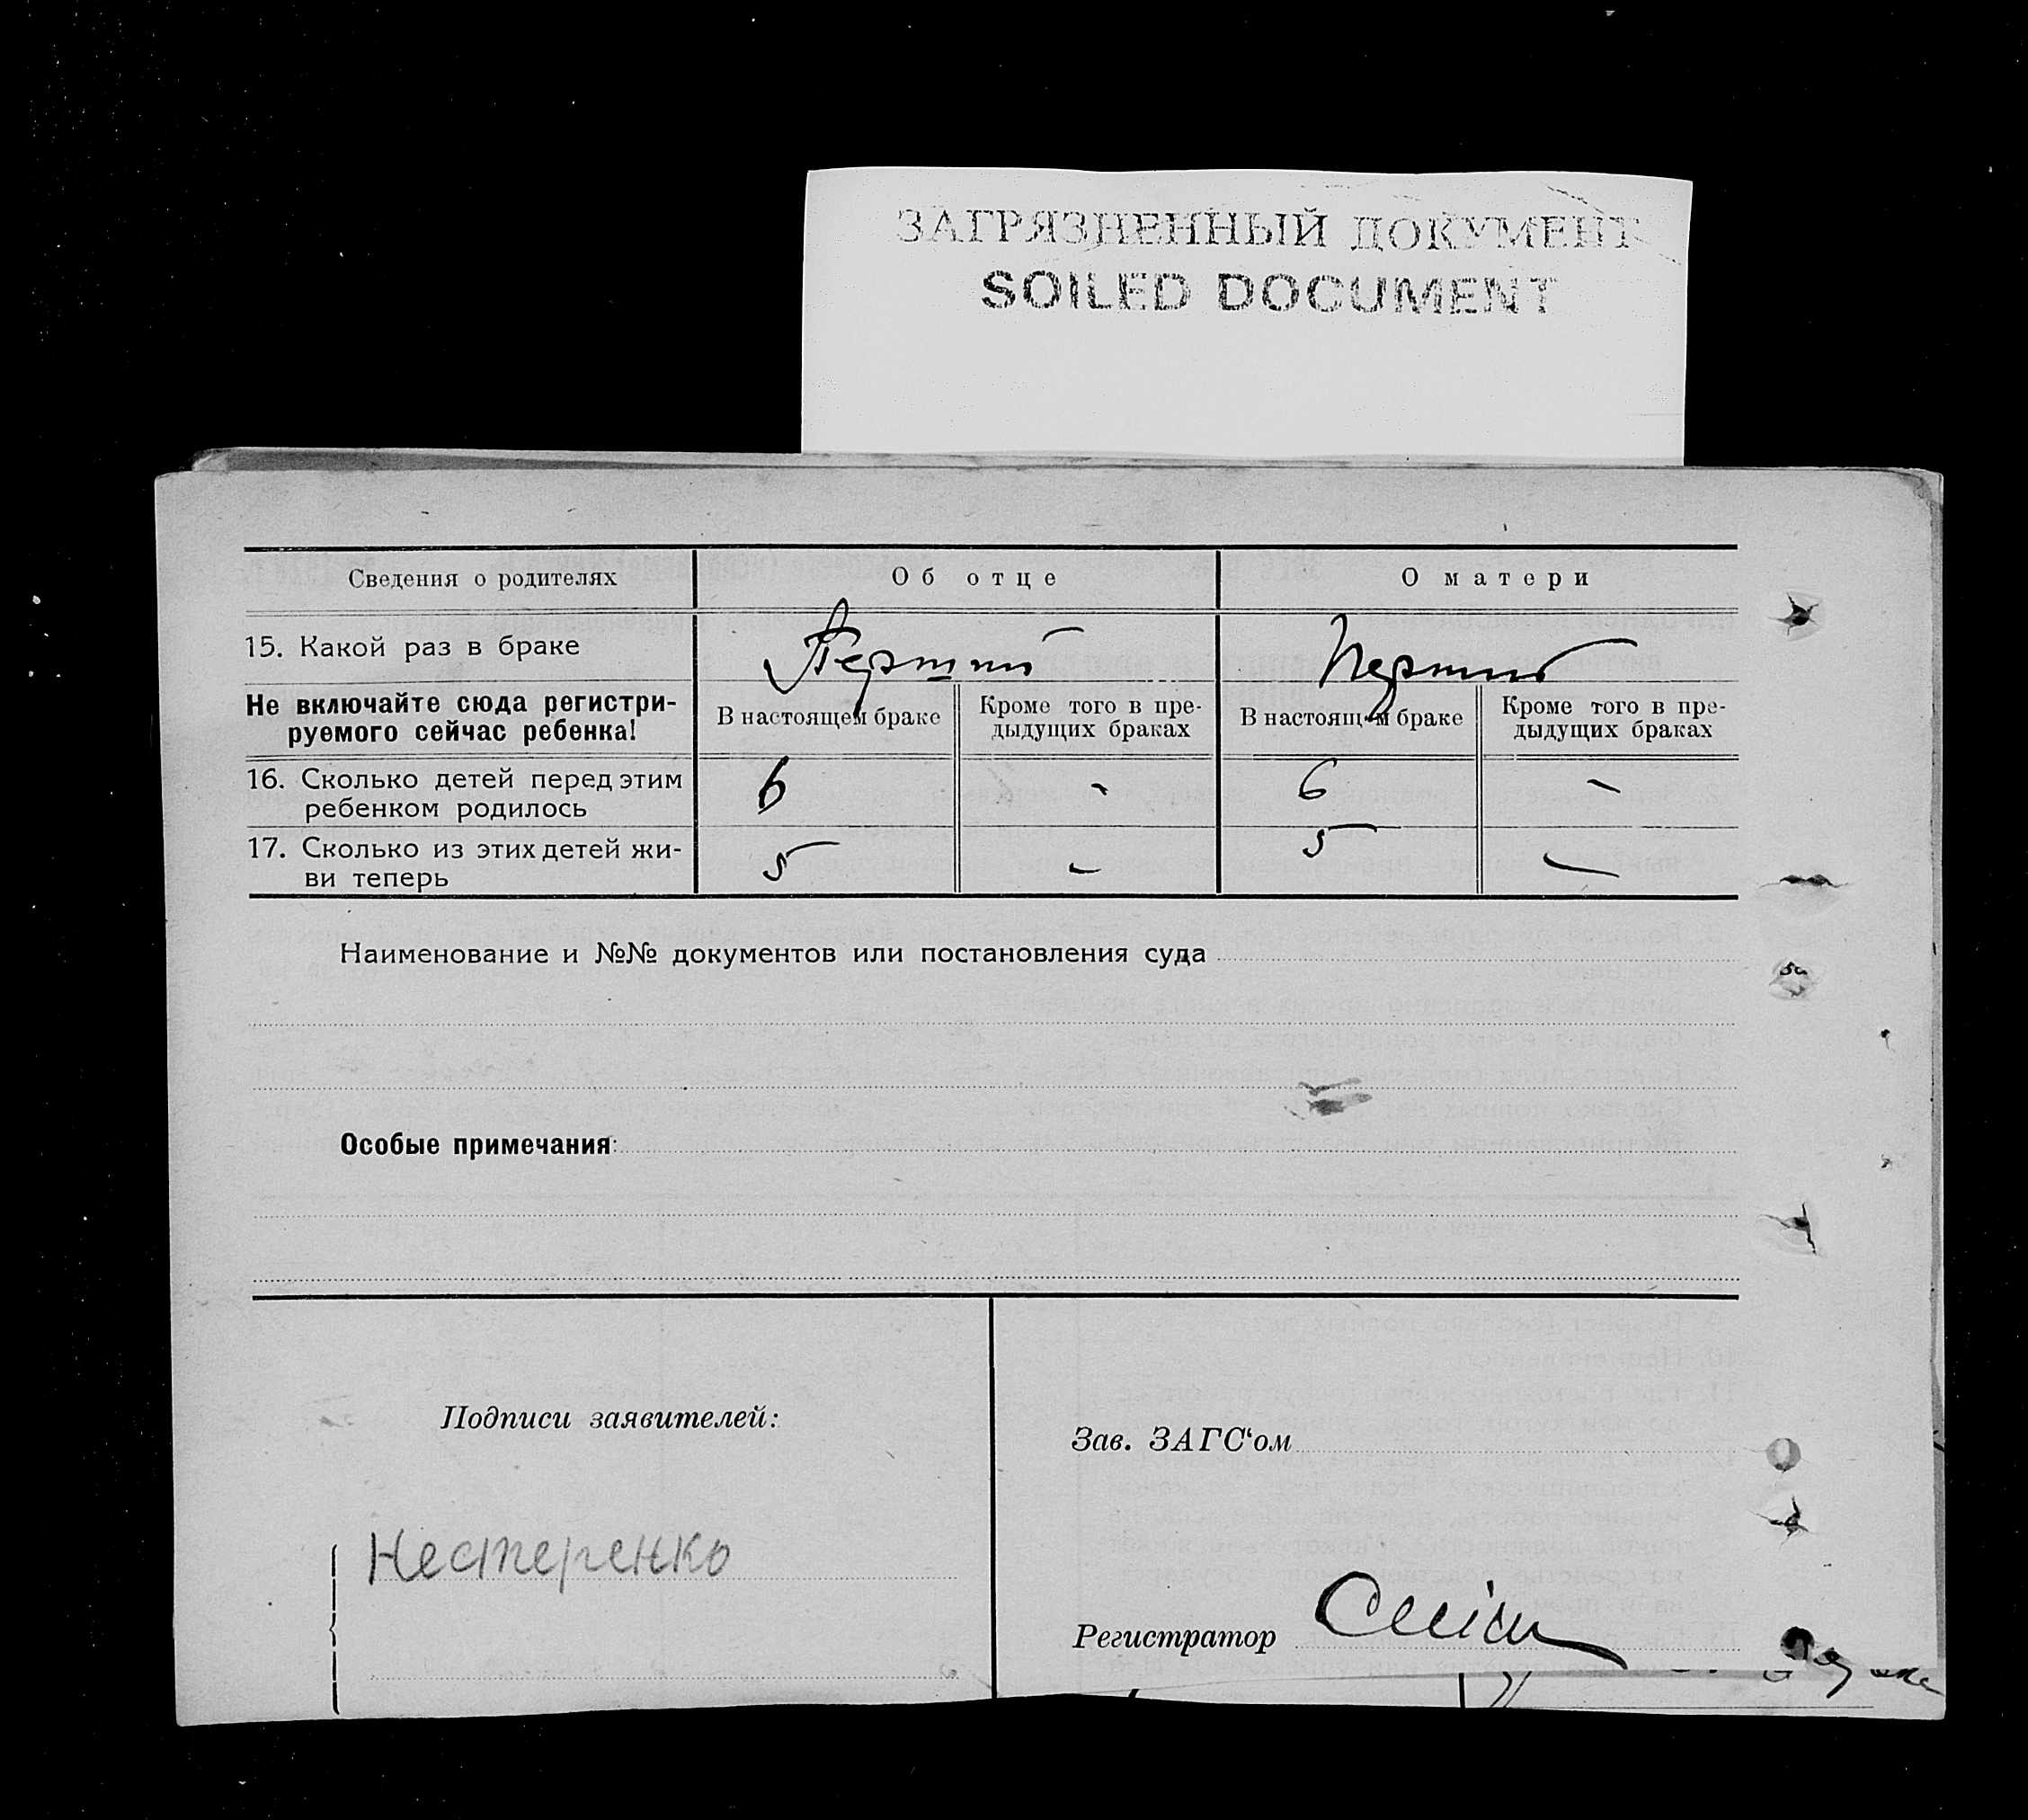 ЗАГРЯЗНЕННЫЙ ДОКУМЕНТ
SOILED DOCUMENT
Сведения о родителях Об отце О матери
15. Какой раз в браке Перший Перший
Не включайте сюда регистри-
руемого сейчас ребенка!
В настоящем браке
Кроме того в пре-
дыдущих браках
В настоящ м браке
Кроме того в пре-
дыдущих браках
16. Сколько детей перед этим
ребенком родилось 6 - 6 -
17. Сколько из этих детей жи-
ви теперь 5 - 5 -
Наименование и №№ документов или постановления суда
Особые примечания:
Подписи заявителей:
Нестеренко
Зав. ЗАГС‘ом
Регистратор